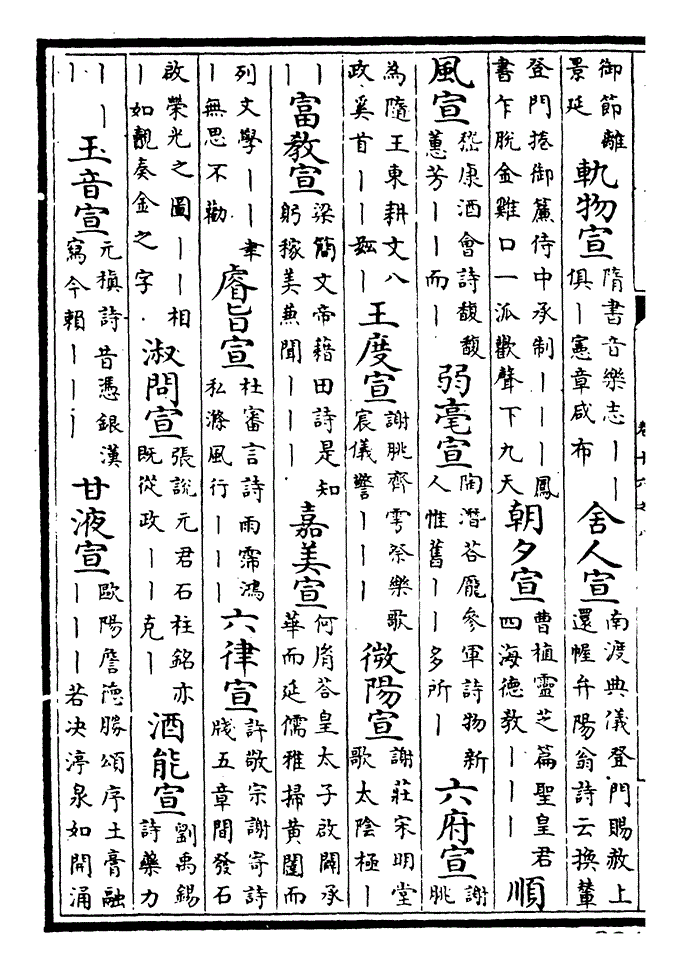 御節離景延軌物宣隋書音樂志｜｜俱｜憲章咸布舍人宣南渡典儀登門賜赦上還幄弁陽翁詩云換輦
登門捲御簾侍中承制｜｜｜鳳書乍脫金雞口一派歡聲下九天朝夕宣曹植靈芝篇聖皇君四海德教｜｜｜順
風宣嵇康酒會詩馥馥蕙芳｜｜而｜弱毫宣陶潛荅龐參軍詩物新人惟舊｜｜多所｜六府宣謝朓
為隨王東耕文八政奚首｜｜茲｜王度宣謝朓齊雩祭樂歌宸儀警｜｜｜微陽宣謝莊宋明堂歌太陰極｜
｜｜｜富教宣梁簡文帝藉田詩是知躬稼美兼聞｜｜｜嘉美宣何胥荅皇太子啟闢承華而延儒雅掃黄闥而
列文學｜｜聿｜無思不勸睿旨宣杜審言詩雨霈鴻私滌風行｜｜｜六律宣許敬宗謝寄詩牋五章間發石
啟榮光之圖｜｜相｜如觀奏金之字淑問宣張說元君石柱銘亦既從政｜｜克｜酒能宣劉禹錫詩藥力
｜｜｜玉音宣元稹詩昔憑銀漢寫今賴｜｜｜甘液宣歐陽詹德勝頌序土膏融｜｜｜若决渟泉如開涌